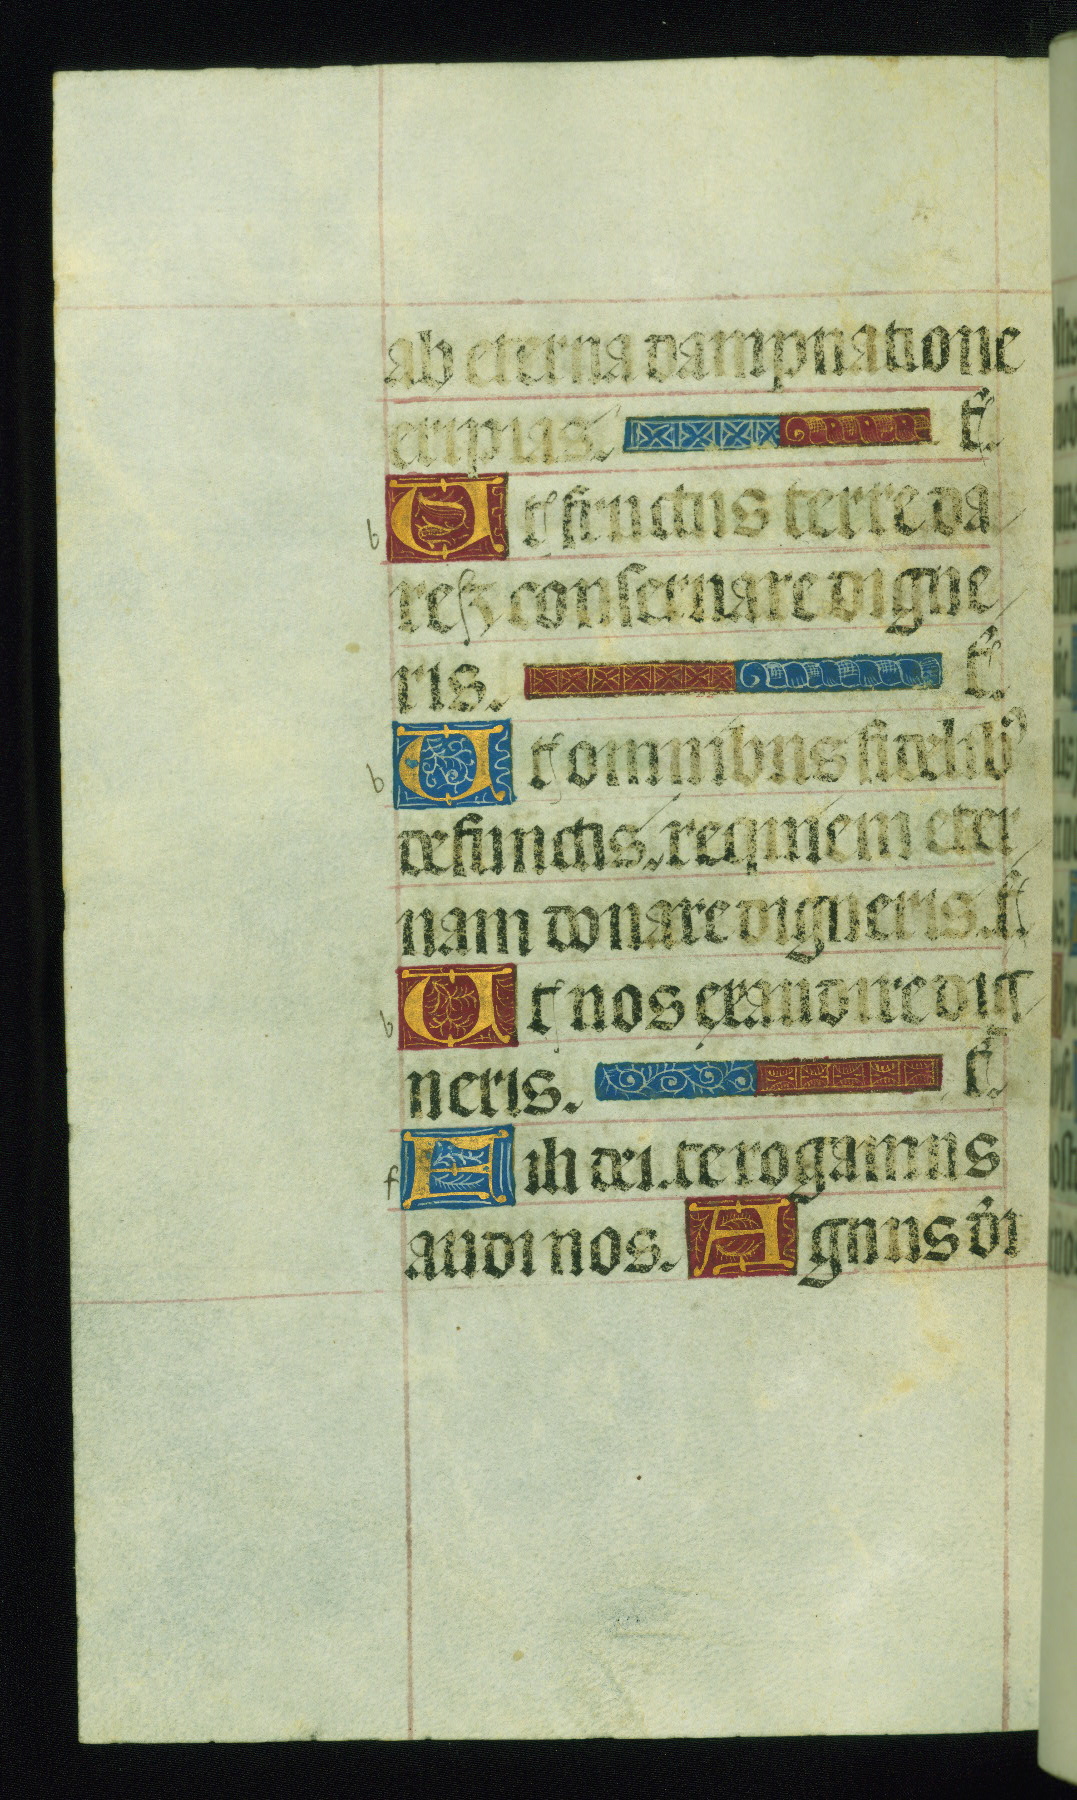 ab eterna dampnatione
eripias. t̃.
Ut fructus terre da
re ⁊ conseruare digne
ris. t̃.
Ut omnibus fidelibꝰ
defunctis, requiem eter
nam donare digneris. t̃
Ut nos exaudire dig
neris. t̃.
Fili dei. te rogamus
audi nos. Agnus dı̃